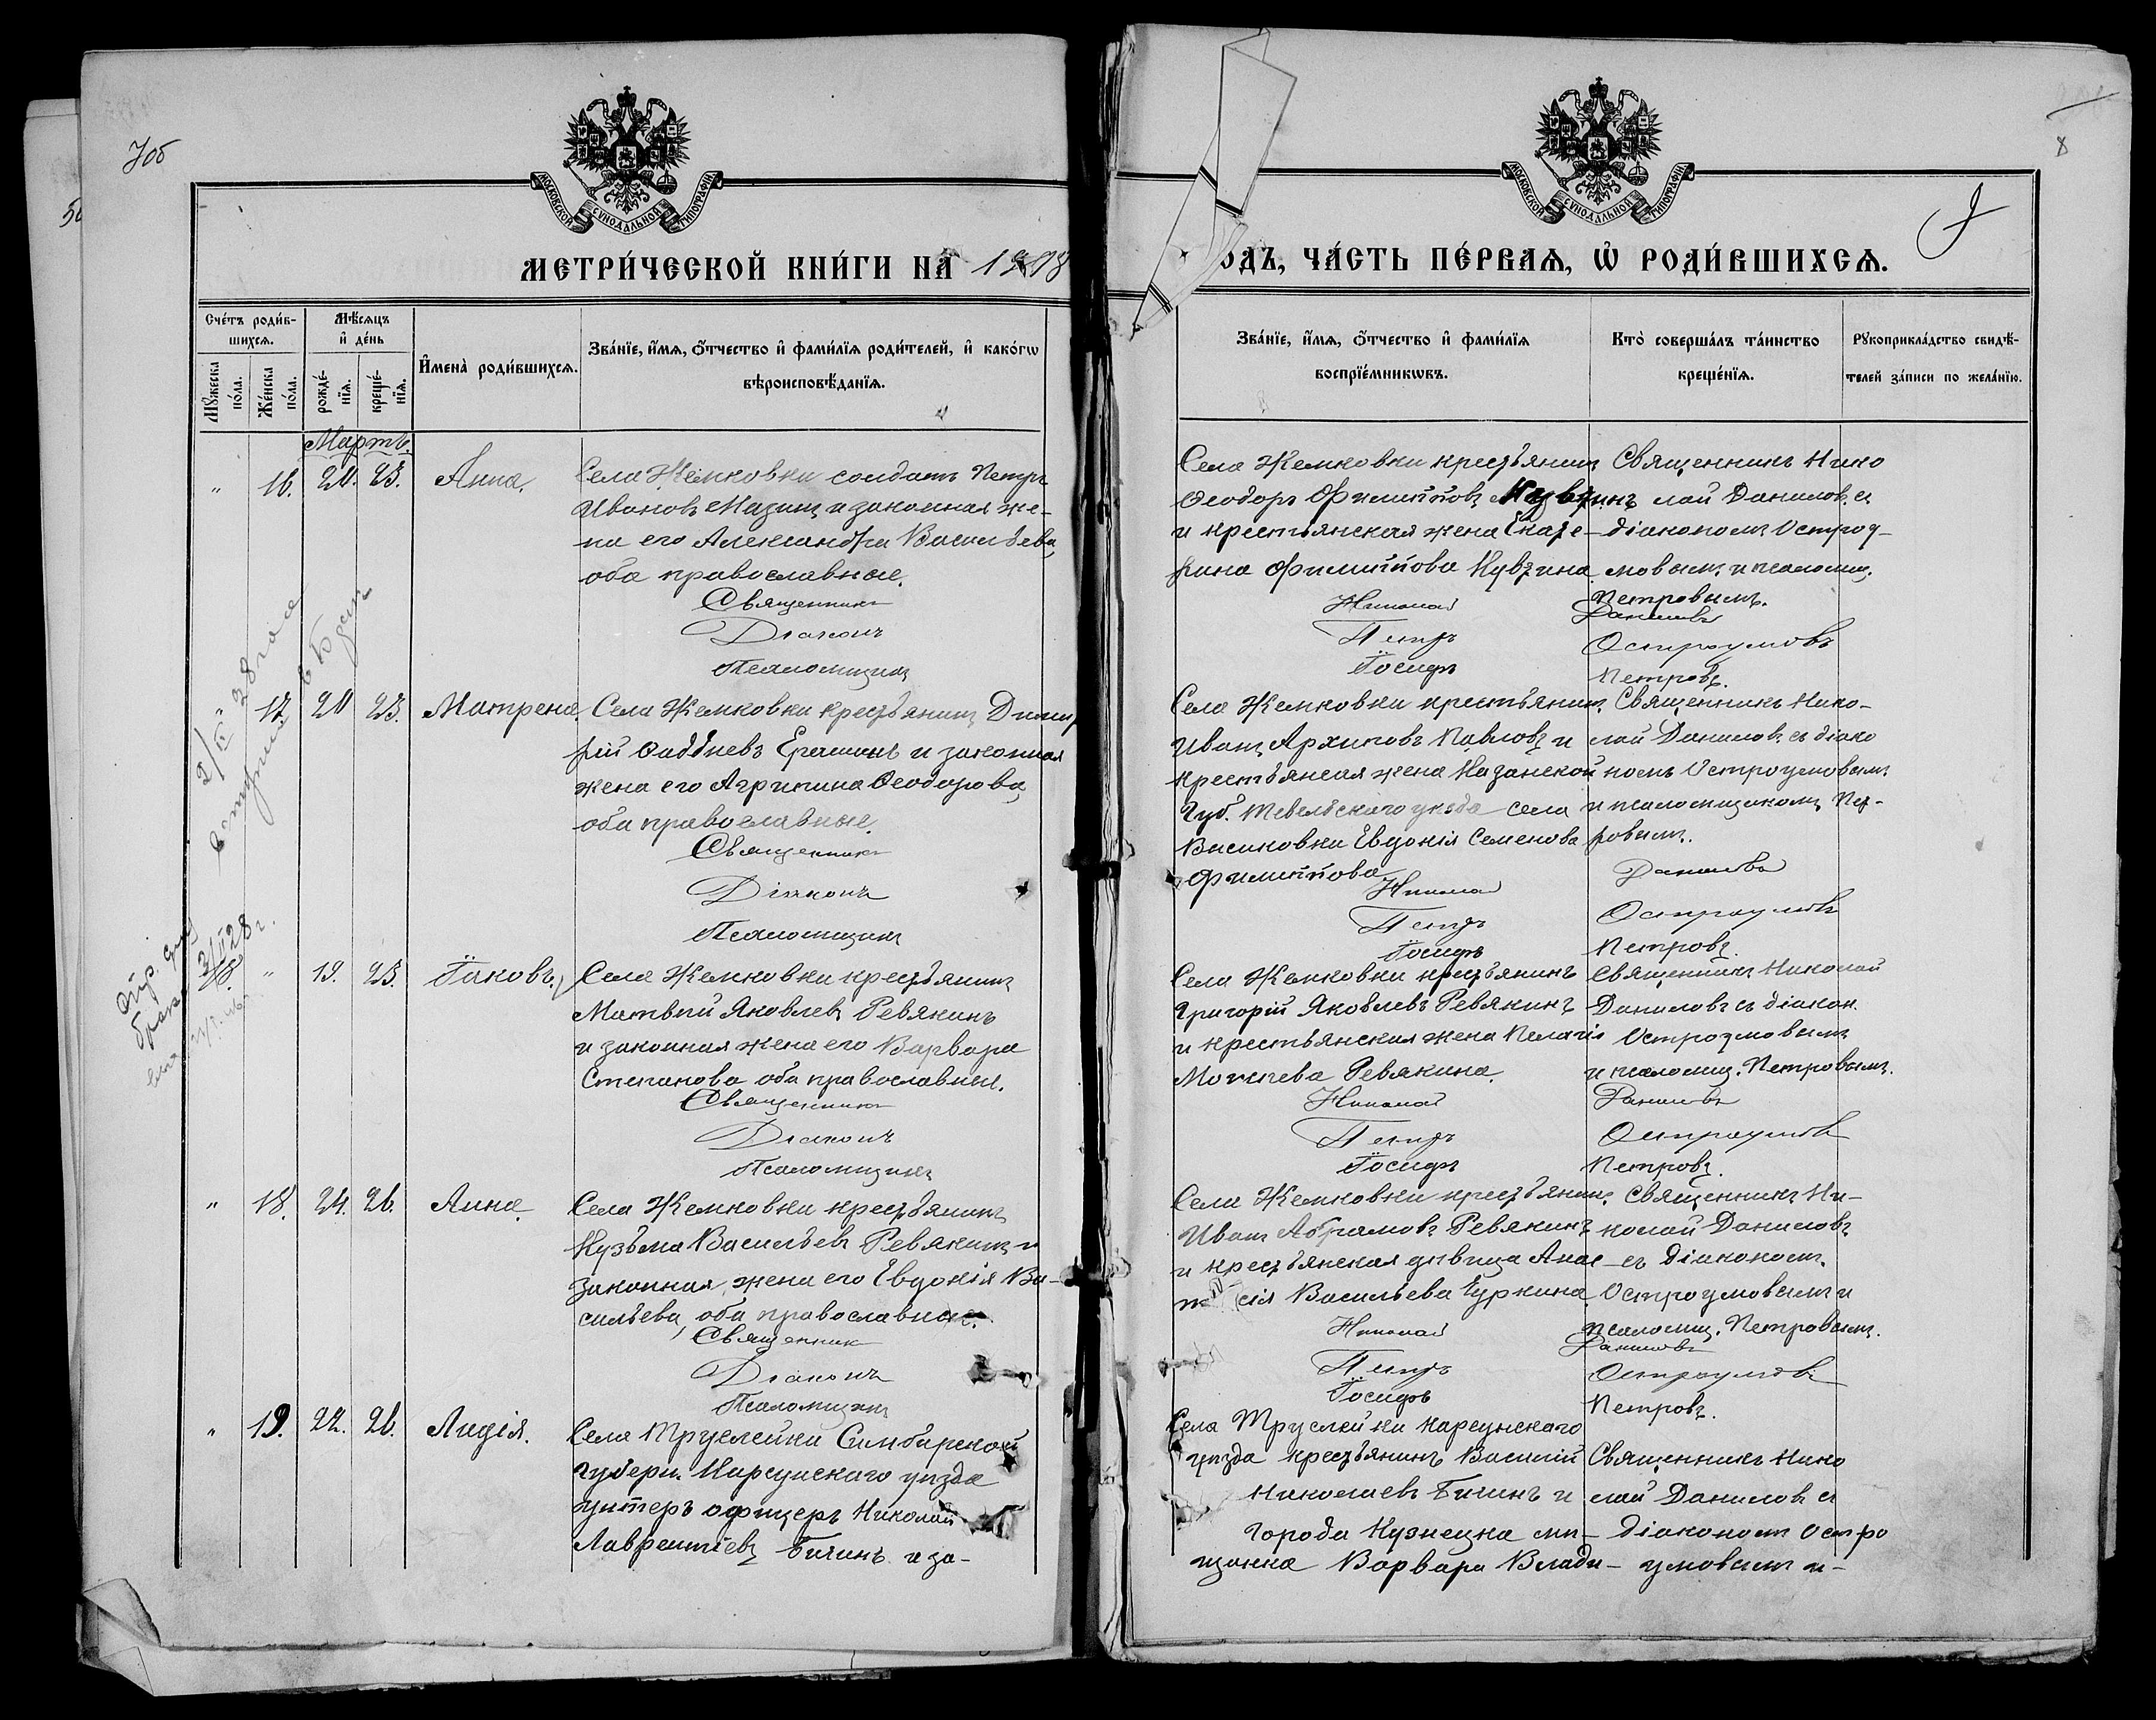 7об
8
МОСКОВСКОЙ СѴНОДАЛЬНОЙ ТИПОГРАФІИ
МОСКОВСКОЙ СѴНОДАЛЬНОЙ ТИПОГРАФІИ
МЕТРИ́ЧЕСКОЙ КНИ́ГИ НА 1908
ОДЪ, ЧА́СТЬ ПЕ́РВАѦ, Ѡ҆ РОДИ́ВШИХСѦ.
Сче́тъ роди́в-
шихсѧ.
Мꙋ́жеска по́ла.
Же́нска по́ла.
Мѣ́сѧцъ
и҆ де́нь
рожде́-
нїѧ.
креще́-
нїѧ.
И҆мена̀ роди́вшихсѧ.
Зва́нїе, и҆́мѧ, ѻ҆́тчество и҆ фами́лїѧ роди́телей, и҆ како́гѡ
вѣроисповѣ́данїѧ.
Зва́нїе, и҆́мѧ, ѻ҆́тчество и҆ фами́лїѧ
воспрїе́мникѡвъ.
Кто̀ соверша́лъ та́инство
креще́нїѧ.
Рꙋкоприкла́дство свидѣ́-
телей за́писи по жела́нїю.
Мартъ.
" 16. 20. 23. Анна.
Села Жемковки солдатъ Петръ
Ивановъ Мазинъ и законная же-
на его Александра Васильева,
оба православные.
Священникъ
Діаконъ
Псаломщикъ
Села Жемковки крестьянинъ
Ѳеодоръ Филипповъ Кувзинъ
и крестьянская жена Екате-
рина Филиппова Кувзина.
Николай
Петръ
Іосифъ
Священникъ Нико
лай Данилов. съ
діакономъ Остроу-
мовым. и псаломщ.
Петровымъ.
Даниловъ
Остроумовъ
Петровъ.
" 17. 20 23. Матрена.
Села Жемковки крестьянинъ Димит
рій Ѳаддѣевъ Ерашинъ и законная
жена его Агрипина Ѳеодорова,
оба православные.
Священникъ
Діаконъ
Псаломщикъ
Села Жемковки крестьянинъ
Иванъ Архиповъ Павловъ и
крестьянская жена Казанской
Губ. уѣзда села
Васиновки Евдокія Семенова
Филиппова
Николай
Петръ
Іосифъ
Священникъ Нико-
лай Данилов. съ діако
номъ Остроумовымъ
и псаломщикомъ Пет-
ровымъ.
Даниловъ
Остроумовъ
Петровъ.
18. " 19. 23. Іаковъ.
Села Жемковки крестьянинъ
Матвѣй Яковлевъ Ревякинъ
и законная жена его Варвара
Степанова оба православные.
Священникъ
Діаконъ
Псаломщикъ
Села Жемковки крестьянинъ
Григорій Яковлевъ Ревякинъ
и крестьянская жена Пелагія
Ревякина.
Николай
Петръ
Іосифъ
Священникъ Николай
Даниловъ съ діакон.
Остроумовымъ
и псаломщ. Петровымъ.
Даниловъ
Остроумовъ
Петровъ.
" 18. 24. 26. Анна.
Села Жемковки крестьянинъ
Кузьма Васильевъ Ревякинъ и
законная жена его Евдокія Ва-
сильева, оба православные.
Священникъ
Діаконъ
Псаломщикъ
Села Жемковки крестьянинъ
Иванъ Абрамовъ Ревякинъ
и крестьянская дѣвица Анас-
сія Васильева Чуркина.
Николай
Петръ
Іосифъ
Священникъ Ни-
колай Даниловъ
съ діакономъ
Остроумовымъ и
псаломщ. Петровымъ.
Даниловъ
Остроумовъ
Петровъ.
" 19. 22. 26. Лидія.
Села Труслейки Симбирской
Губерн. Карсунскаго уѣзда
унтеръ офицеръ Николай
Лаврентіевъ Бичинъ и за-
Села Труслейки Карсунскаго
уѣзда крестьянинъ Василій
Николаевъ Бичинъ и
города Кузнецка мѣ-
щанка Варвара Влади-
Священникъ Нико
лай Данилов съ
діакономъ Остро
умовымъ и-